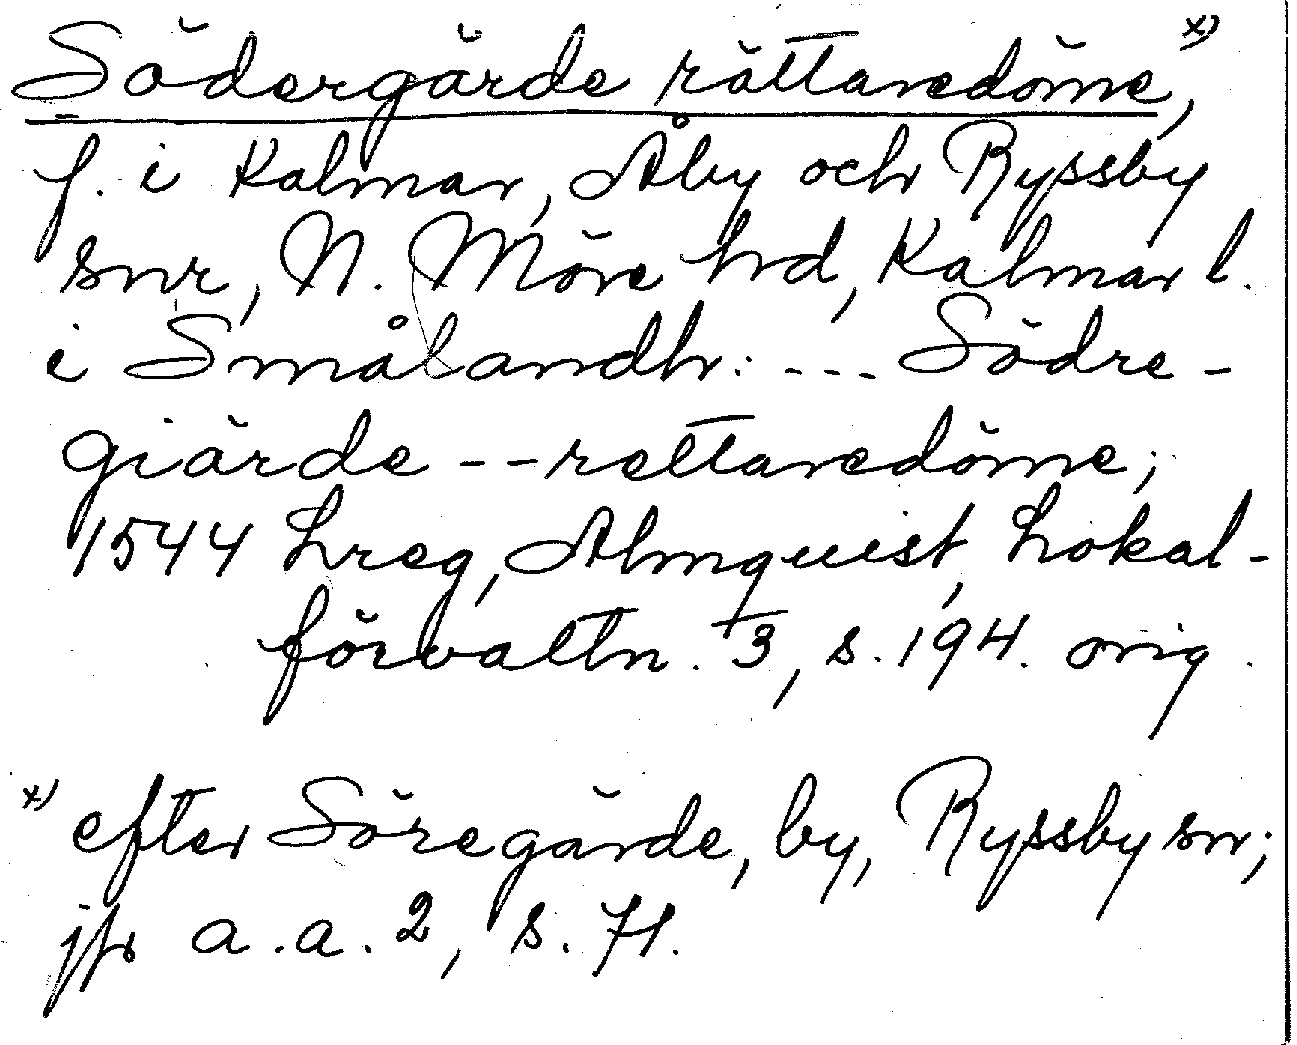 Södergärde rättaredöme, x)
f. i Kalmar, Åby och Ryssby
snr, N. Möre hd, Kalmar l.
i Smålandh: --- Södre-
giärde -- rettaredöme;
1544 Lreg, Almquist, Lokal-
förvaltn. 3, s. 194. orig.
x) efter Söregärde, by, Ryssby sn;
jfr a.a. 2, s. 71.